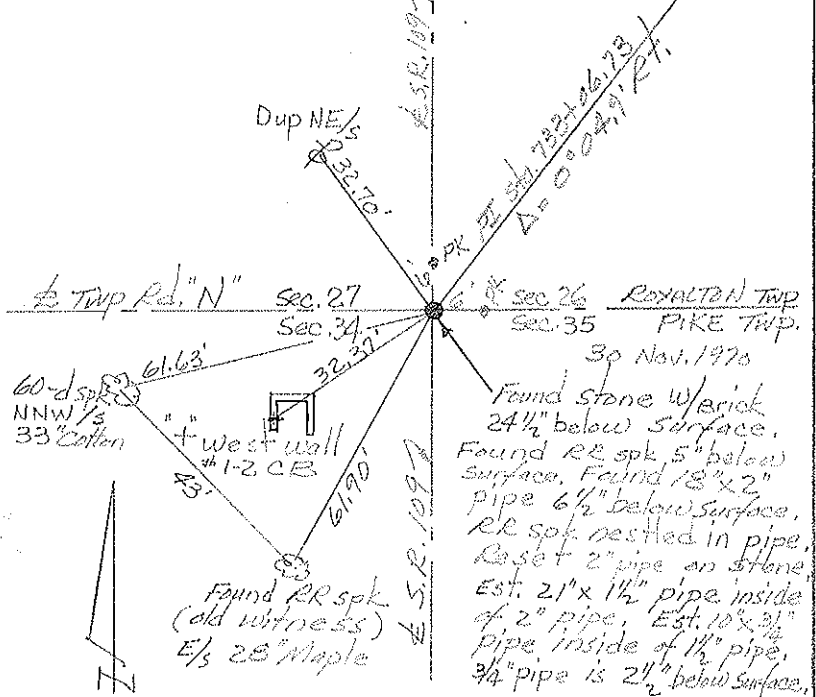 ℄ S.R. 109
PI sta. 733+06.73
Δ= 0°04.9' Rt.
Dup NE/s
32.70'
6' PK
℄ Twp Rd. "N"
Sec. 27
Sec. 34
6' PK
Sec 26
Sec. 35
ROYALTON TWP
PIKE TWP.
30 Nov. 1970
61.63'
32.37'
60-d spk
NNW/s
33" Cotton
"+" West wall
#1-2 CB
43'
61.90'
℄ S.R. 109
Found RR spk
(old witness)
E/s 28" Maple
Found stone W/Brick
24½" below surface.
Found RR spk 5" below
surface. Found 18"x2"
pipe 6½" below surface.
RR spk nestled in pipe.
Reset 2" pipe on stone.
Est. 21"x 1½" pipe inside
of 2" pipe. Est. 10"x 3/4"
pipe inside of 1½" pipe.
3/4" pipe is 2½" below surface.